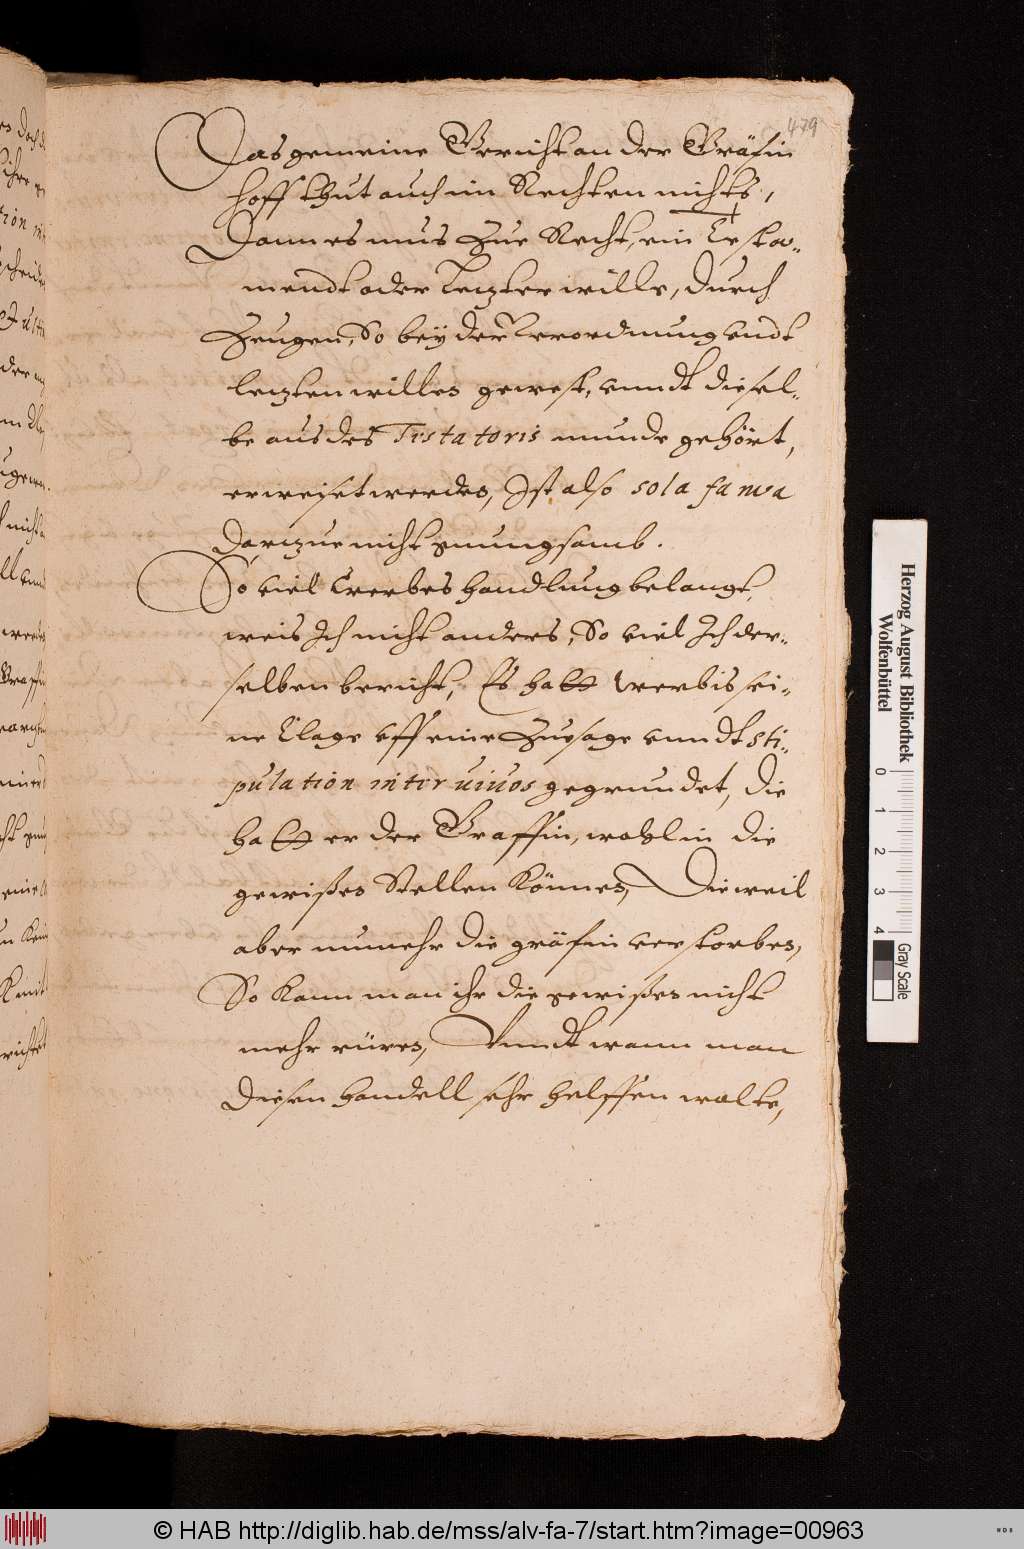 479
Das gemeine Gerücht an der Gräfin
hoff thut auch im Rechten nichts,
Dann es mus Zue Recht, ein Testa-
mendt oder Letzter wille, durch
Zeugen, So bey der Verordnung undt
letzten willen gewest, unndt diesel-
be aus des Testatoris munde gehört,
erweiset werden, Ist also sola fama
darzue nicht gnungsamb.
So viel Verbes handlung belangt,
weis Ich nicht anders, So viel Ich der-
selben bericht, Es hatt Verbis sei-
ne Clage uff eine Zuesage unndt sti-
pulation inter uiuos gegrundet, die
hatt er der Graffin, wohl in die
gewißen Stellen Können, Dieweil
aber numehr die gräfin verstorben,
So Kann man ihr die gewißen nicht
mehr rüren, Vnndt wann man
diesen handell sehr helffen wolte,
Herzog August Bibliothek
Wolfenbüttel
0 1 2 3 4
Gray Scale
© HAB http://diglib.hab.de/mss/alv-fa-7/start.htm?image=00963